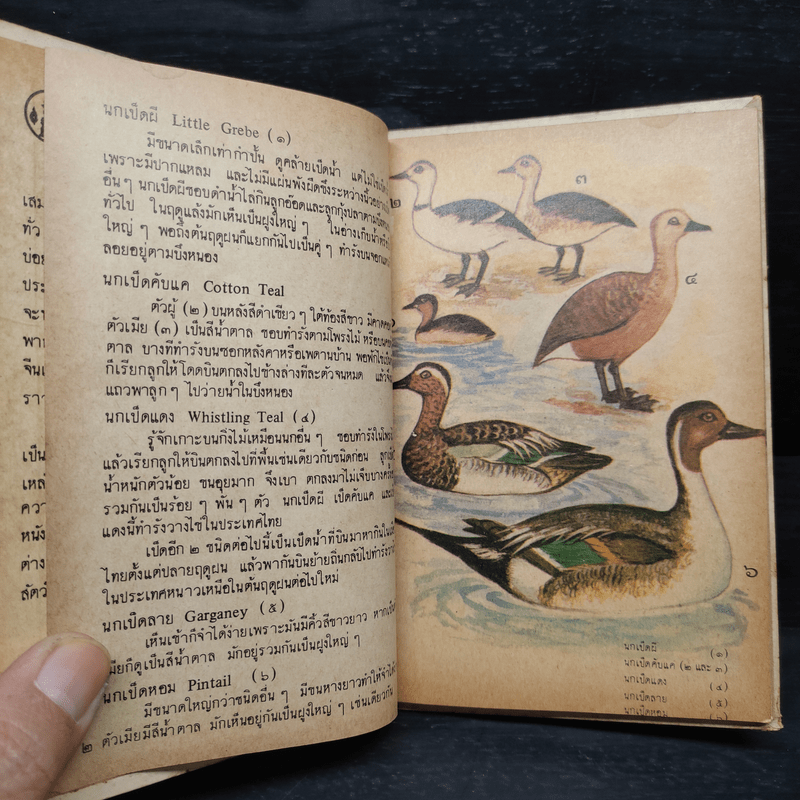 เสม
ทั่ว
บ่อย
ประ
จะห
พาก
จีนเ
ราว
เป็น
เหลื
ควา
หนัง
ต่าง
สัตว์
นกเป็ดผี Little Grebe (๑)
มีขนาดเล็กเท่ากำปั้น ดูคล้ายเป็ดน้ำ แต่ไม่ใช่เป็ด
เพราะมีปากแหลม และไม่มีแผ่นพังผืดขึงระหว่างนิ้ว
อื่นๆ นกเป็ดผีชอบดำน้ำไล่กินลูกอ๊อดและลูกกุ้งปลาตามบึงหนอง
ทั่วไป ในฤดูแล้งมักเห็นเป็นฝูงใหญ่ๆ ในอ่างเก็บน้ำ
ใหญ่ๆ พอถึงต้นฤดูฝนก็แยกกันไปเป็นคู่ๆ ทำรังบนจอกแหน
ลอยอยู่ตามบึงหนอง
นกเป็ดคับแค Cotton Teal
ตัวผู้ (๒) บนหลังสีดำเขียวๆ ใต้ท้องสีขาว มีคาด
ตัวเมีย (๓) เป็นสีน้ำตาล ชอบทำรังตามโพรงไม้
ตาล บางทีทำรังบนซอกหลังคาหรือเพดานบ้าน พอฟักไข่
ก็เรียกลูกให้โดดบินตกลงไปข้างล่างทีละตัวจนหมด แล้ว
แถวพาลูกๆ ไปว่ายน้ำในบึงหนอง
นกเป็ดแดง Whistling Teal (๔)
รู้จักเกาะบนกิ่งไม้เหมือนนกอื่นๆ ชอบทำรังในโพรง
แล้วเรียกลูกให้บินตกลงไปที่พื้นเช่นเดียวกับชนิดก่อน
น้ำหนักตัวน้อย ขนอุยมาก จึงเบา ตกลงมาไม่เจ็บ
รวมกันเป็นร้อยๆ พันๆ ตัว นกเป็ดผี เป็ดคับแค และ
แดงนี้ทำรังวางไข่ในประเทศไทย
เป็ดอีก ๒ ชนิดต่อไปนี้เป็นเป็ดน้ำที่บินมาหากินใน
ไทยตั้งแต่ปลายฤดูฝน แล้วพากันบินย้ายถิ่นกลับไปทำรัง
ในประเทศหนาวเหนือในต้นฤดูฝนต่อไปใหม่
นกเป็ดลาย Garganey (๕)
เห็นเข้าก็จำได้ง่ายเพราะมันมีคิ้วสีขาวยาว
เมียก็ดูเป็นสีน้ำตาล มักอยู่รวมกันเป็นฝูงใหญ่ๆ
นกเป็ดหอม Pintail (๖)
มีขนาดใหญ่กว่าชนิดอื่นๆ มีขนหางยาวทำให้จำได้
๒ ตัวเมียมีสีน้ำตาล มักเห็นอยู่กันเป็นฝูงใหญ่ๆ เช่นเดียวกัน
๒
๓
๔
๖
นกเป็ดผี (๑)
นกเป็ดคับแค (๒ และ ๓)
นกเป็ดแดง (๔)
นกเป็ดลาย (๕)
นกเป็ดหอม (๖)